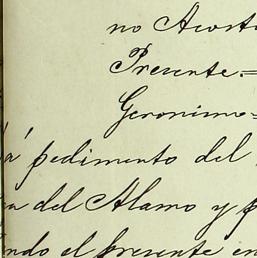 no Acost
Presente.=
Geronimo=
á pedimento del
a del Alamo y p
ndo el presente en